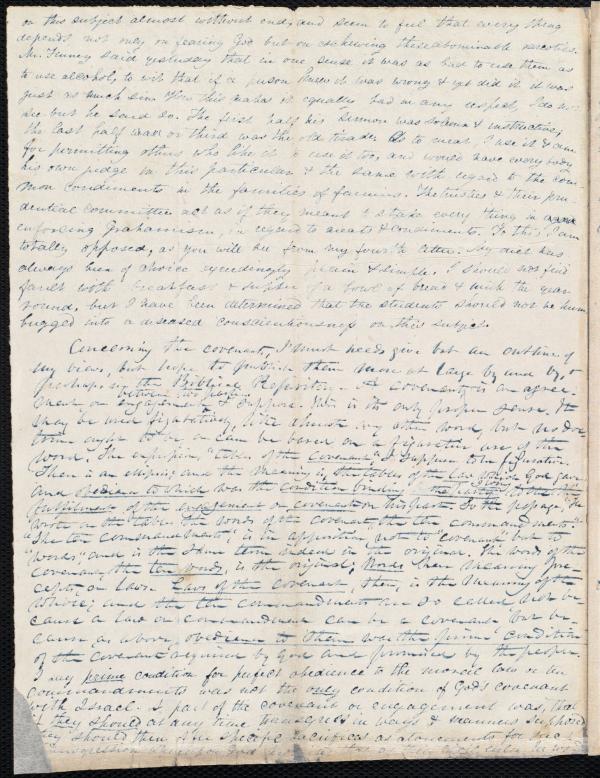 on this subject almost without end, and seem to feel that every thing
depends not only on fearing God but on eschewing these abominable
Mr. Finney said yesterday that in one sense it was as bad to use them as
to use alcohol, to wit that if a person knew it was wrong & yet did it it was
just as much sin. How this makes it equally bad in any respect, I do not
see but he said so. The first half his sermon was solemn & instructive,
the last half or third was the old tirade. As to meat, I use it & am
for permitting others who like it to use it too, and would have every body
his own judge in this particular & the same with regard to the com-
mon condiments in the families of farmers. The trustees & their pru-
dential committee act as if they meant to stake every thing in
enforcing Grahamism, in regard to meats & condiments. To this I am
totally opposed, as you will see from my fourth letter. My diet has
always been of choice exceedingly plain & simple. I should not find
fault with breakfast & supper of a bowl of bread & milk the year
round, but I have been determined that the students should not be hum-
bugged into a diseased conscientiousness on this subject.
Concerning the covenants, I must needs give but an outline of
my views, but hope to publish them more at large by and by, &
perhaps in the Biblical Repository. A covenant is an agree-
between two parties
ment or engagement, I suppose. This is its only proper sense. It
may be used figuratively, like almost any other word, but no doc-
trine ought to be or can be based on a figurative use of the
word. The expression, "tables of the covenant" I suppose to be figurative.
There is an ellipsis and the meaning is the tables of the law which God gave
and obedience to which was the condition
fulfilment of the engagement or covenant on his part. So the passage, "
wrote on the tables the words of the covenant, the ten commandments."
"The ten commandments" is in apposition not to "covenant" but to
"words," and is the same term indeed in the original. The words of the
covenant, the ten words, is the original; Words here meaning pre-
cepts, or laws. Laws of the covenant, then, is the meaning of the
whole; and the ten commandments are so called, not be-
cause a law or commandment can be a covenant but be-
cause as above, obedience to them was the prime condition
of the covenant required by God and promised by the people.
I say prime condition for perfect obedience to the moral law or ten
commandments was not the only condition of God's covenant
with Israel. A part of the covenant or engagement was, that
if they should at any time transgress in ways & manners supposed
they should then offer specific sacrifices as atonements for such
transgression